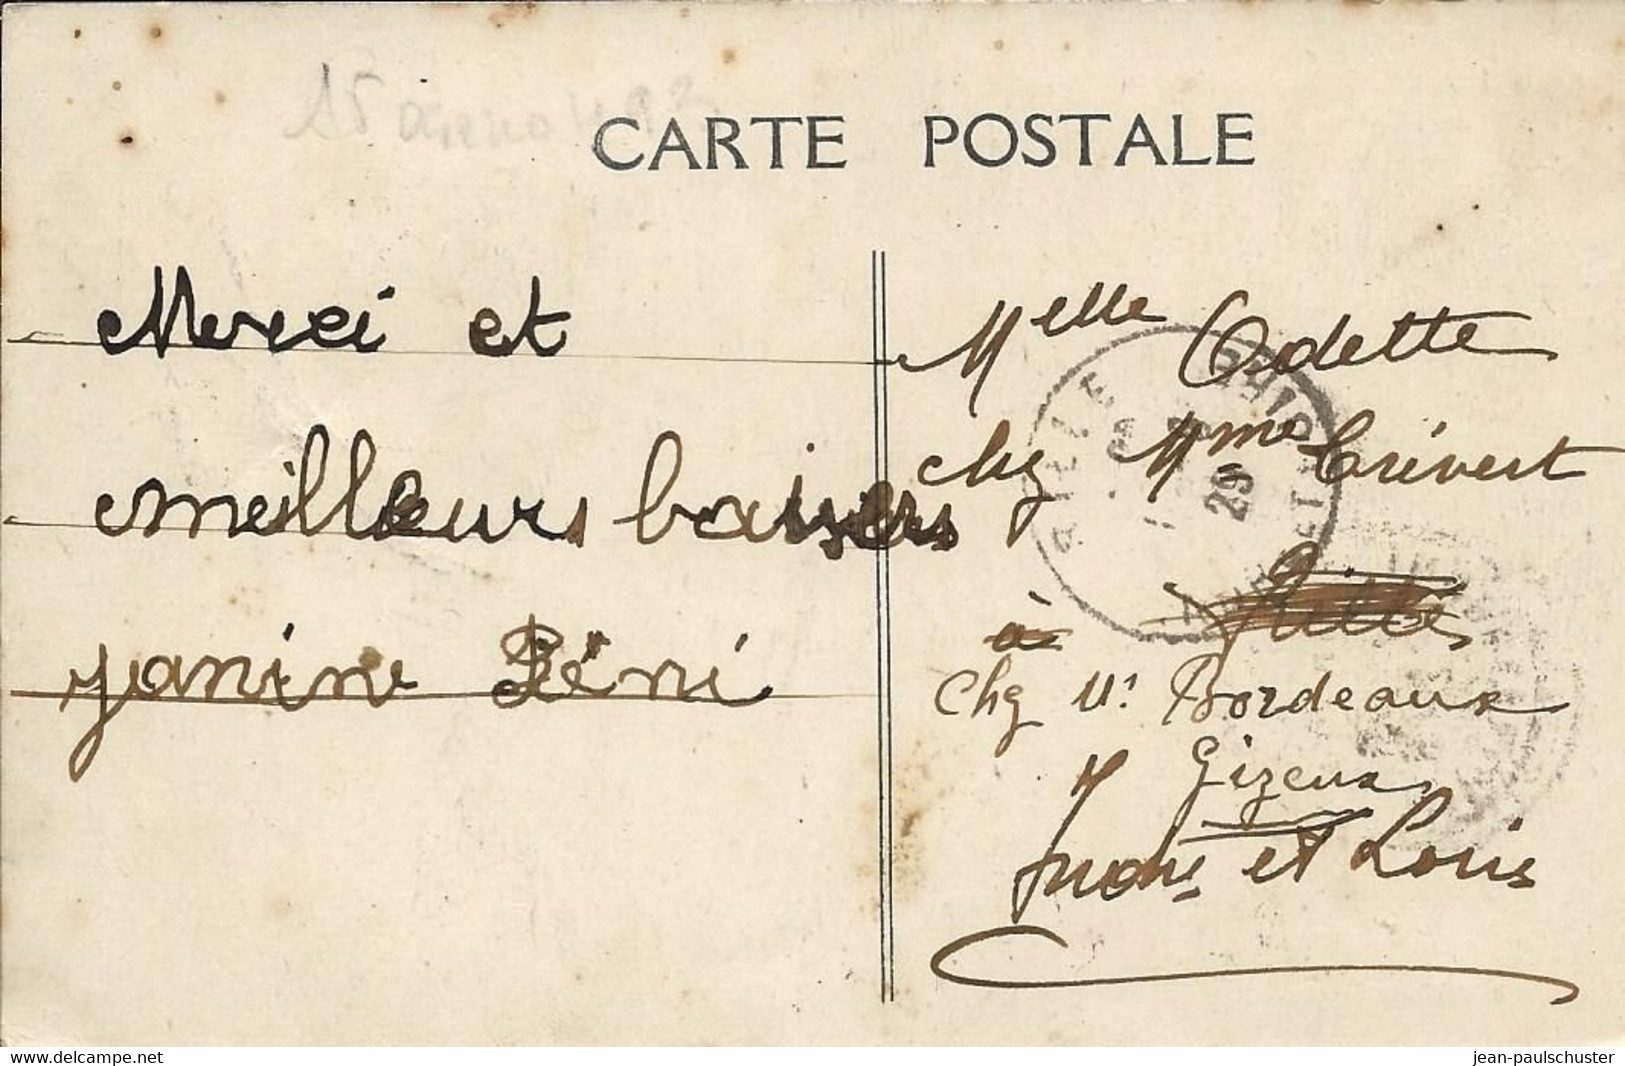 CARTE POSTALE
Merci et
meilleurs baisers
janine Réni
Melle Odette
chz Mme Crévert
à Rillé
Chz Mr Bordeaux
Gizeux
Indre et Loire
29
delcampe.net
jean-paulschuster